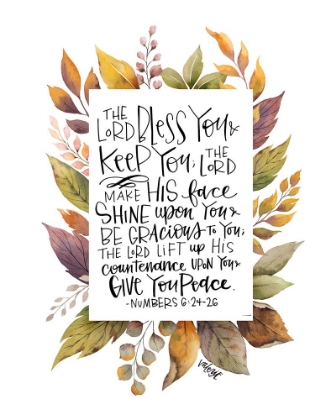 THE
LORD BLESS YOU &
KEEP YOU; THE LORD
MAKE HIS face
SHINE upon YOU &
BE GRACIOUS TO YOU;
THE LORD LIFT up HIS
countenance UPON YOU &
GIVE YOU Peace.
-NUMBERS 6:24-26